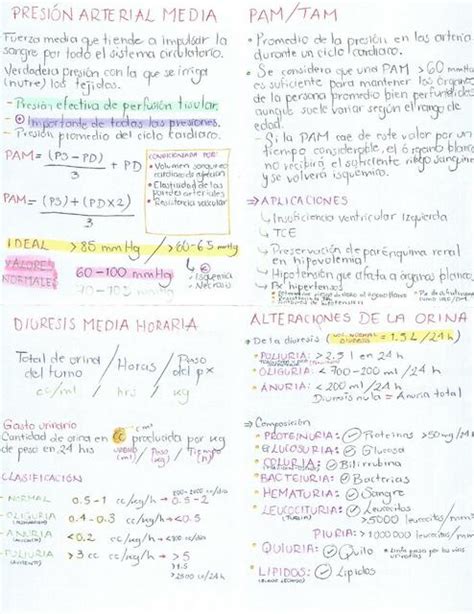 PRESIÓN ARTERIAL MEDIA
Fuerza media que tiende a impulsar la
sangre por todo el sistema circulatorio.
Verdadera presión con la que se irriga
(nutre) los tejidos.
- Presión efectiva de perfusión tisular.
- Importante de todas las presiones.
- Presión promedio del ciclo cardiaco.
PAM = (PS - PD) / 3 + PD
PAM = (PS) + (PD x 2) / 3
CONDICIONADA POR:
• Volumen sanguíneo
cardiaco de eyección
• Elasticidad de las
paredes arteriales
• Resistencia vascular
IDEAL > 85 mmHg / > 60-65 mmHg
VALORES NORMALES 60-100 mmHg
70-100 mmHg
Isquemia
Necrosis
PAM/TAM
• Promedio de la presión en las arterias
durante un ciclo cardiaco.
• Se considera que una PAM > 60 mmHg
es suficiente para mantener los órganos
de la persona promedio bien perfundidos
aunque suele variar según el rango de
edad.
- Si la PAM cae de este valor por un
tiempo considerable, el órgano blanco
no recibirá el suficiente riego sanguíneo
y se volverá isquémico.
⇒ APLICACIONES
Insuficiencia ventricular izquierda
TCE
Preservación de parénquima renal
en hipovolemia
Hipotensión que afecta a órganos blanco
Px hipertensos
DIURESIS MEDIA HORARIA
Total de orina del turno / Horas / Peso del px
cc/ml / hrs / kg
Gasto urinario
Cantidad de orina en cc producida por kg
de peso en 24 hrs
CLASIFICACIÓN
- NORMAL 0.5-1 cc/kg/h → 0.5-2
- OLIGURIA 0.4-0.3 cc/kg/h → <0.5
- ANURIA <0.2 cc/kg/h → <0.5
- POLIURIA >3 cc/kg/h → >5
>2500 cc/24h
ALTERACIONES DE LA ORINA
De la diuresis = 1.5 L/24h
• POLIURIA: > 2.5 l en 24 h
• OLIGURIA: < 700-200 ml/24h
• ANURIA: < 200 ml/24h
Diuresis nula = Anuria total
⇒ Composición
• PROTEINURIA: Proteínas >50mg/
• GLUCOSURIA: Glucosa
• COLURIA: Bilirrubina
• BACTEIURIA: Bacterias
• HEMATURIA: Sangre
• LEUCOCITURIA: Leucocitos
>5000 leucocitos/min
PIURIA: >1000000 leucocitos/min
• QUILURIA: Quilo
• LIPIDOS: Lipidos